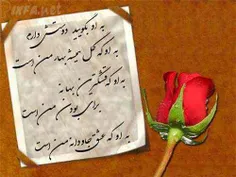 IKFA.net
به او بگویید دوستش دارم
به او که گل همیشه بهار من است
به او که قشنگترین بهانه
برای بودن من است
به او که عشق جاودانه من است